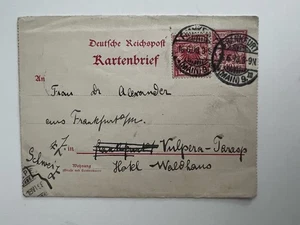 Deutsche Reichspost
Kartenbrief
An
Frau Dr Alexander
aus Frankfurt a/m.
z. Z. in Frankfurt Vulpera-Tarasp
Hotel Waldhaus
Wohnung
(Straße und Hausnummer)
Schweiz
FRANKFURT
(MAIN)